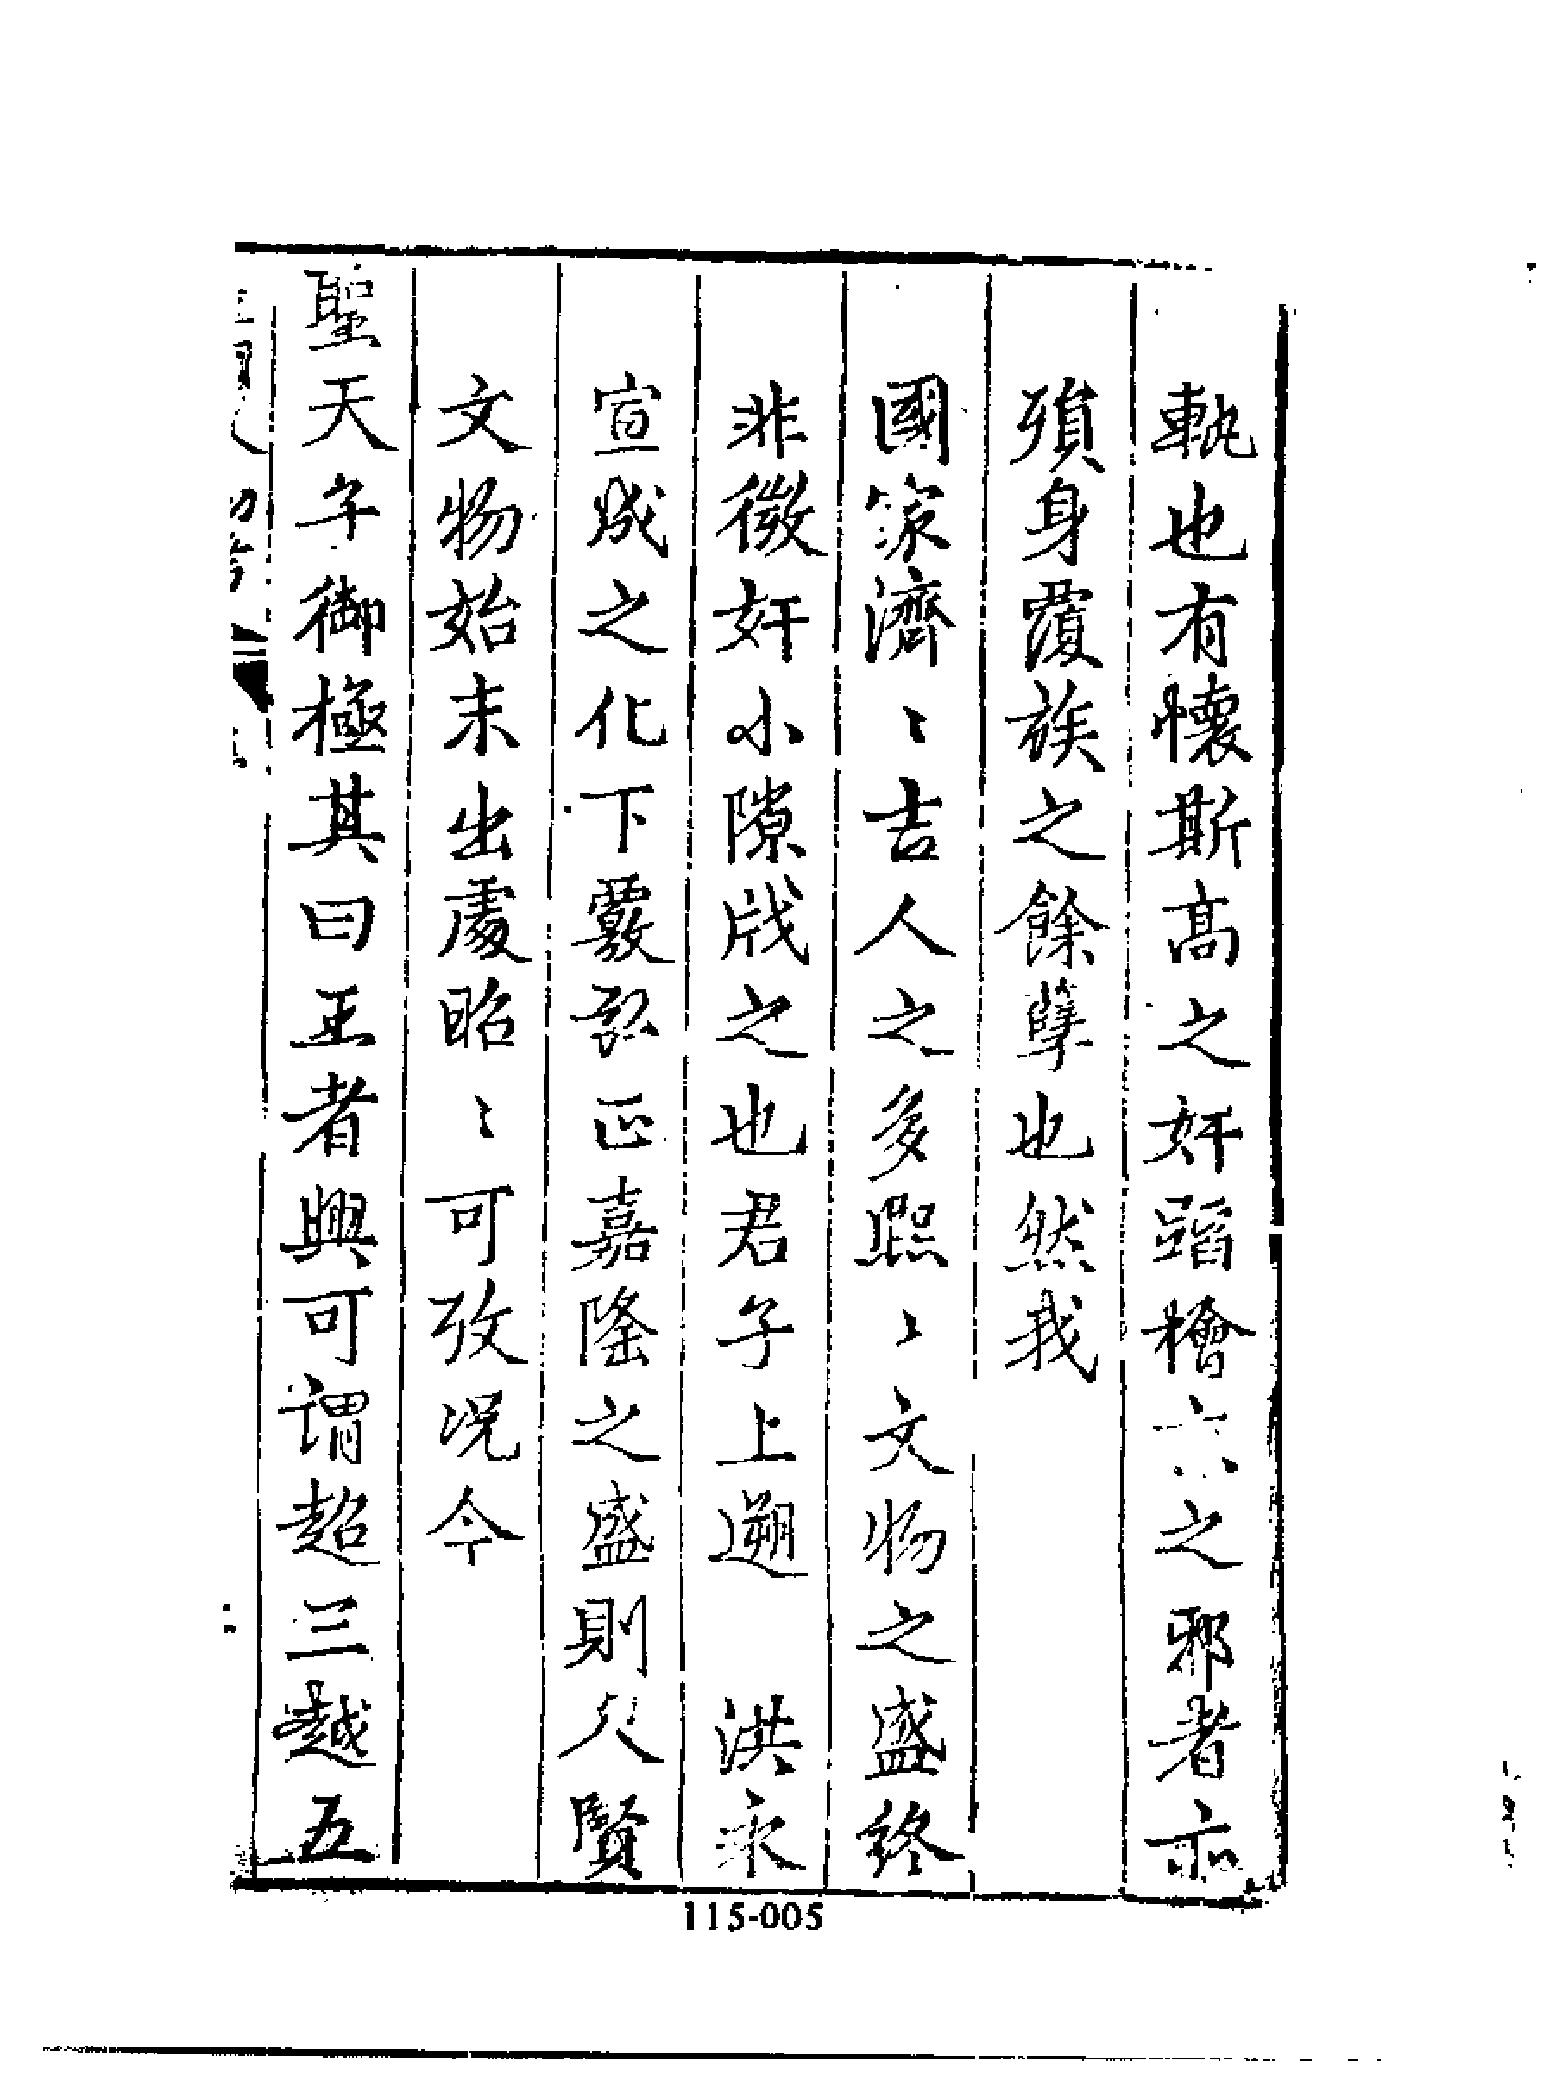 執也有懷斯高之奸蹈檜六之邪者亦
殞身覆族之餘孽也然我
國家濟〻吉人之多熙〻文物之盛終
非微奸小隙戕之也君子上遡　洪永
宣成之化下覈弘正嘉隆之盛則人賢
文物始末出處昭〻可攷況今
聖天子御極其曰王者興可謂超三越五
115-005